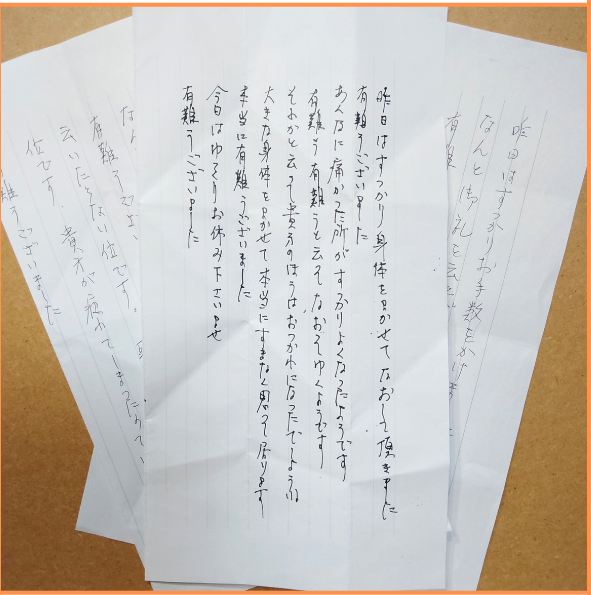 昨日はすっかりお手数をかけ
なんと御礼を云
有
昨日はすっかり身体をまかせてなおして頂きました
有難うございました
あんなに痛かった所がすっかりよくなったようです
有難う有難うと云ってなおってゆくようです
それかと云って貴方のほうはおつかれになったでしょうね
大きな身体をまかせて本当にすまなく思って居ります
本当に有難うございました
今日はゆっくりお休み下さいませ
有難うございました
なん
有難うござい
云いたりない位です。
位です。貴方が疲れてしまった
難うございました